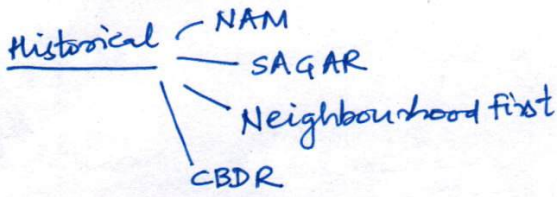 NAM
Historical
SAGAR
Neighbourhood first
CBDR